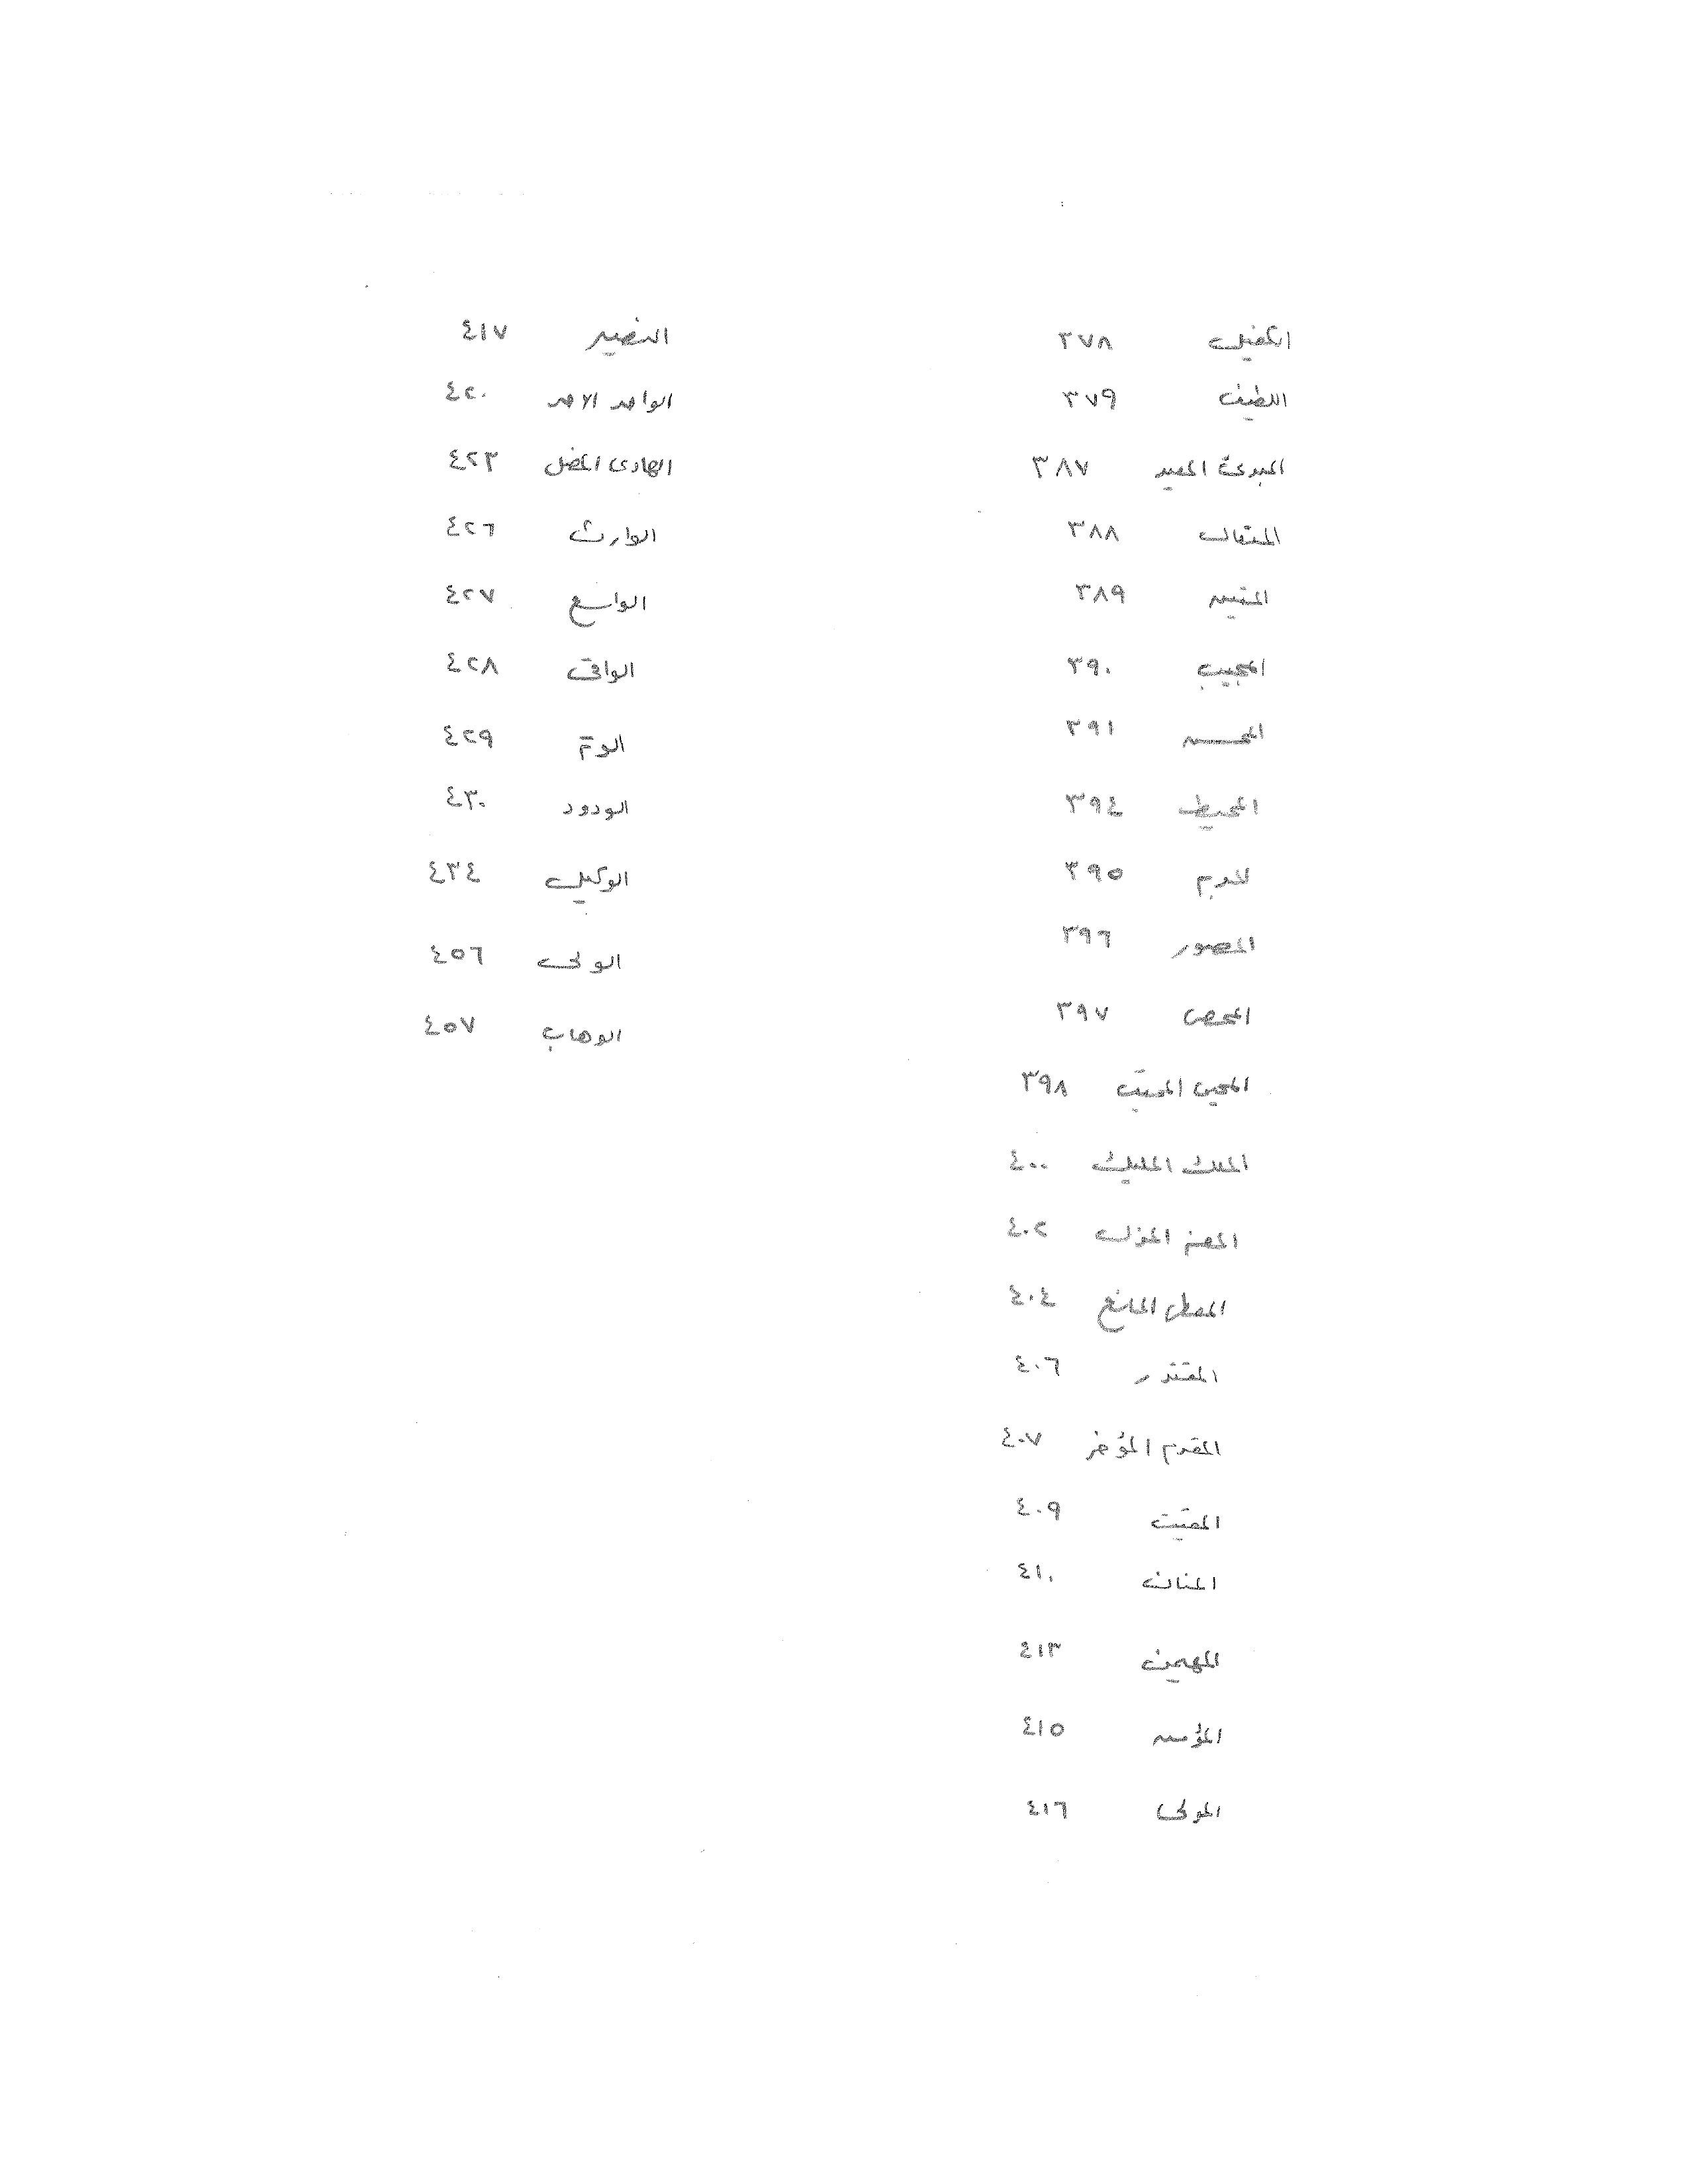 الكفيل ٣٧٨
اللطيف ٣٧٩
المبدئ المعيد ٣٨٧
المتعال ٣٨٨
المتين ٣٨٩
المجيب ٣٩٠
المحسن ٣٩١
المحيط ٣٩٤
٣٩٥
المصور ٣٩٦
المحصى ٣٩٧
المحيى المميت ٣٩٨
الملك المليك ٤٠٠
المعز المذل ٤٠٢
المعطى المانع ٤٠٤
المقتدر ٤٠٦
المقدم المؤخر ٤٠٧
المقيت ٤٠٩
المنان ٤١٠
المهيمن ٤١٣
المؤمن ٤١٥
المولى ٤١٦
النصير ٤١٧
الواحد الاحد ٤٢٠
الهادى المضل ٤٢٣
الوارث ٤٢٦
الواسع ٤٢٧
الواقى ٤٢٨
الوتر ٤٢٩
الودود ٤٣٠
الوكيل ٤٣٤
الولى ٤٥٦
الوهاب ٤٥٧